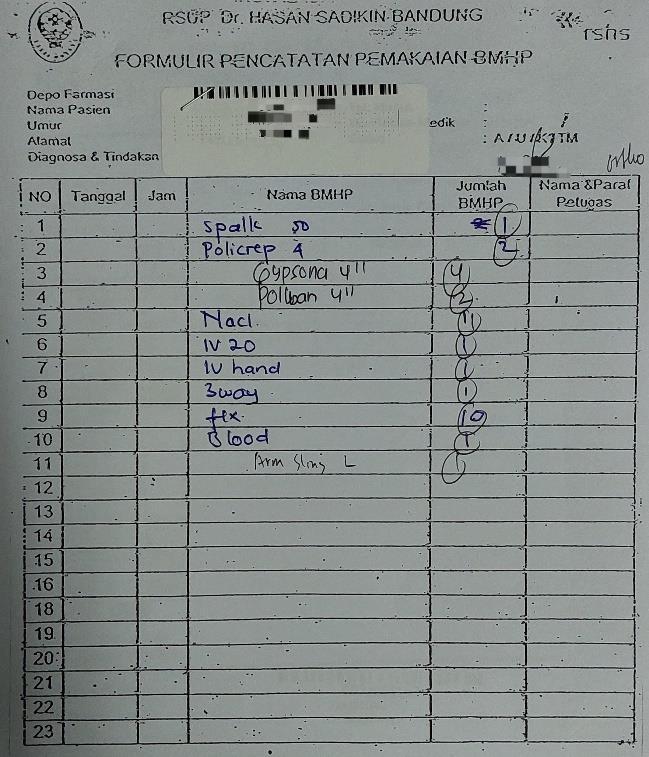 RSUP Dr. HASAN SADIKIN BANDUNG
rshs
FORMULIR PENCATATAN PEMAKAIAN BMHP
Depo Farmasi
Nama Pasien
Umur
edik :
Alamat
Diagnosa & Tindakan
NO Tanggal Jam Nama BMHP Jumlah BMHP Nama &Paraf Petugas
1 Spalk 50 1
2 Policrep 4 2
3 Gypsona 4" 4
4 Poliban 4" 2
5 Nacl
6 IV 20 1
7 IV hand 1
8 3way 1
9 10
10 Blood 1
11 Arm Sling L 1
12
13
14
15
16
18
19
20
21
22
23